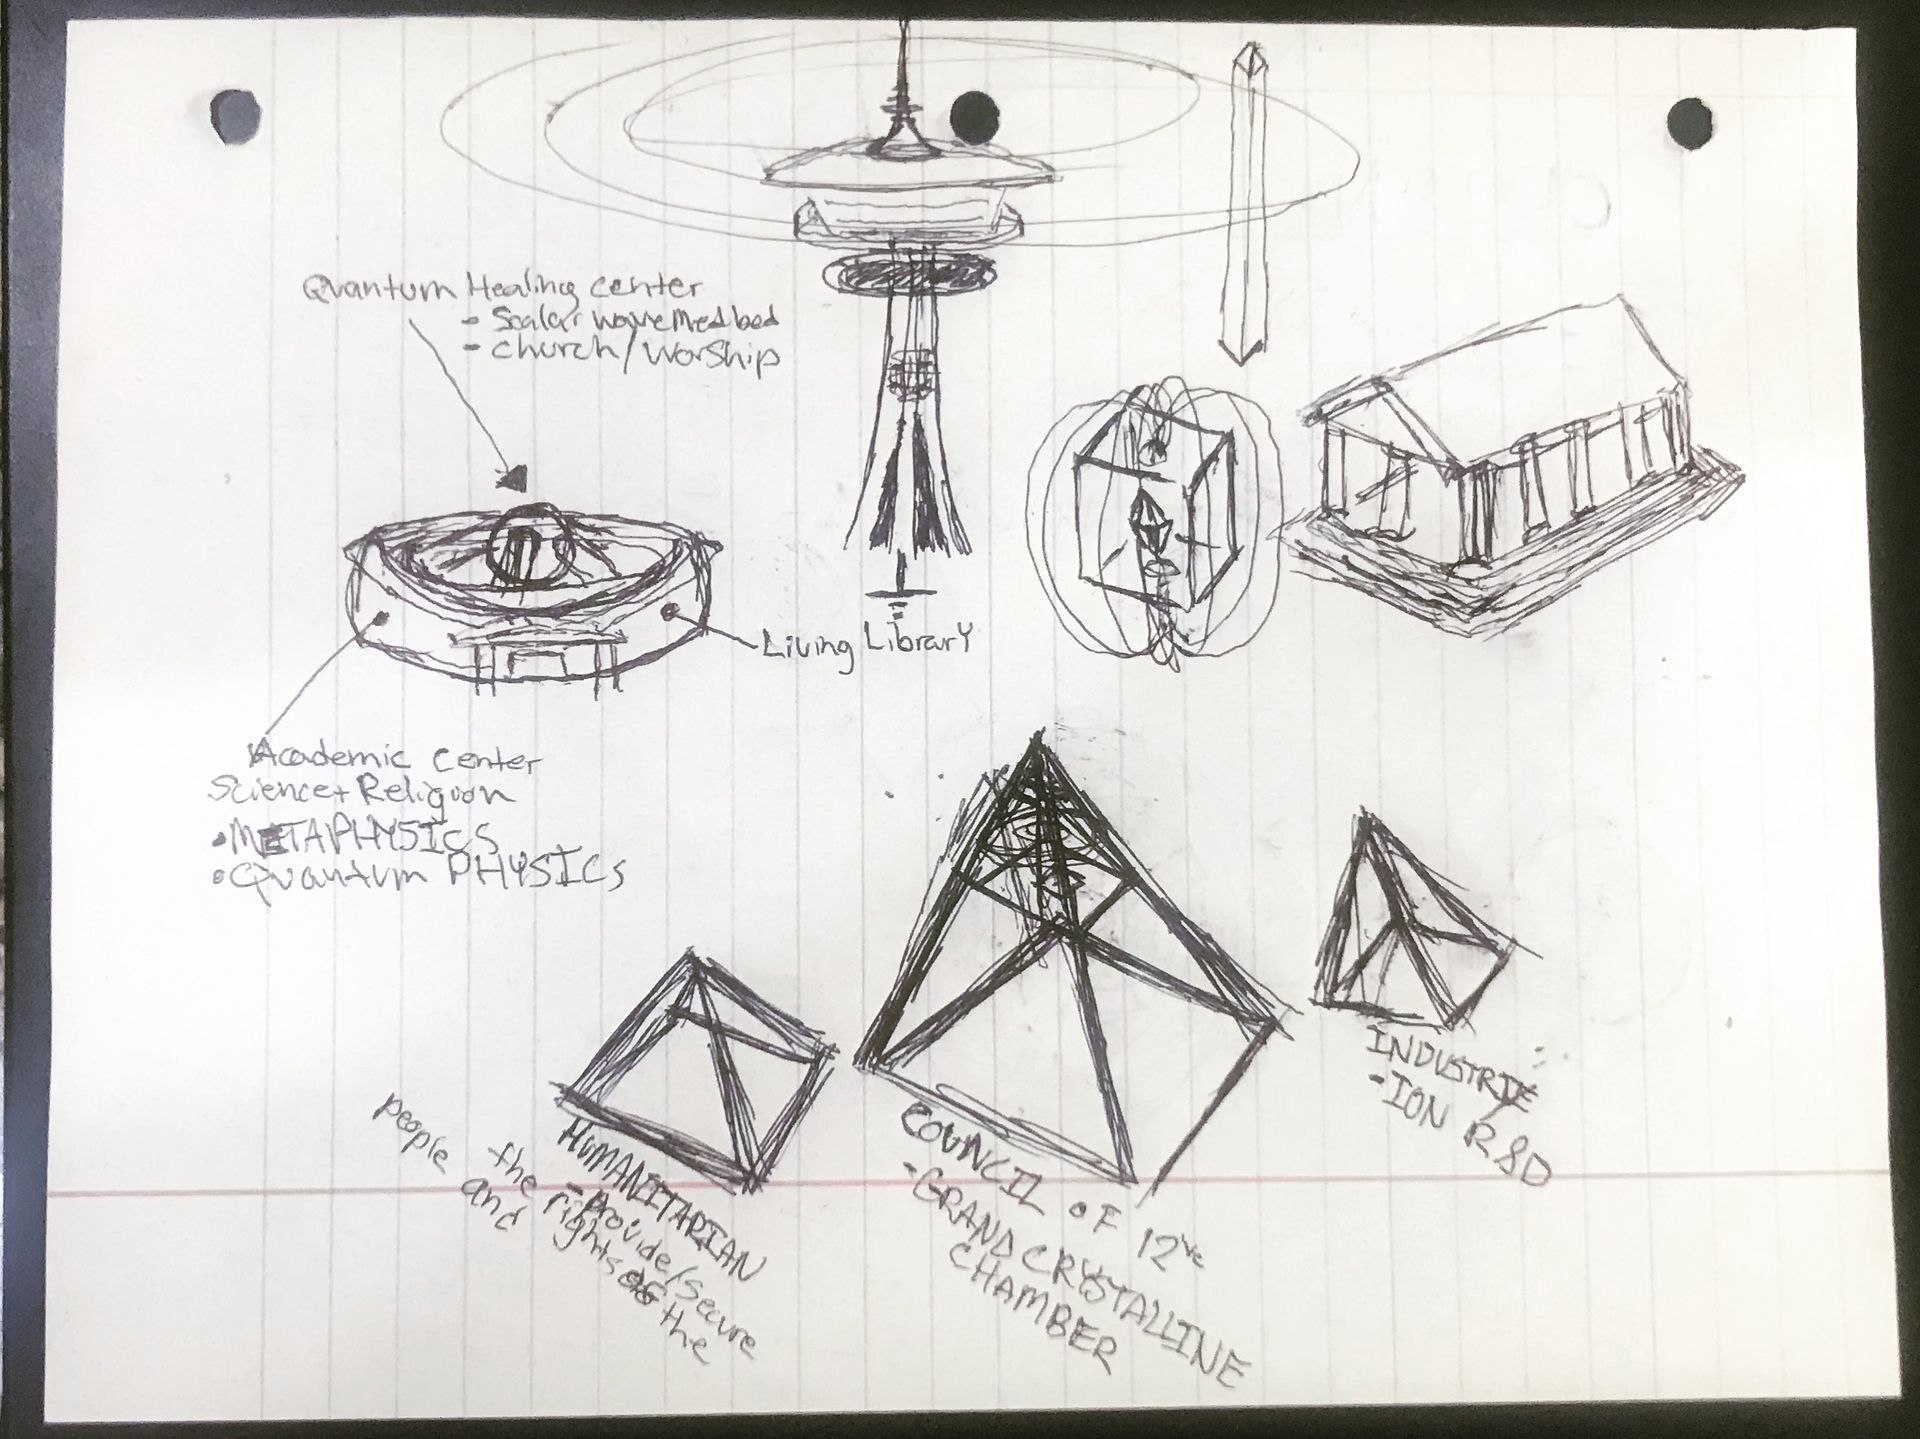 Quantum Healing center
- Scalar wave Med bed
- church/worship
Living Library
Academic center
Science + Religion
• METAPHYSICS
• Quantum PHYSICS
INDUSTRIE
- ION R&D
COUNCIL OF 12
- GRAND CRYSTALLINE
CHAMBER
HUMANITARIAN
- Provide/secure
the rights of the
people and